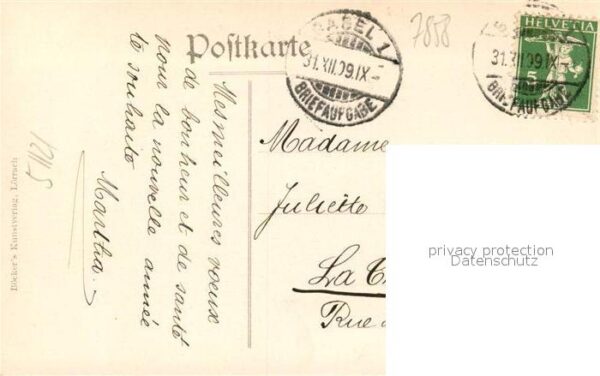 Postkarte
BASEL 1
31.XII.09.IX-
BRIEFAUFGABE
31.XII.09.IX-
BRIEFAUFGABE
HELVETIA
5
7858
Mes meilleures voeux
de bonheur et de santé
pour la nouvelle année
te souhaite
Martha.
Madame
Juliette
La
Rue
Böcker's Kunstverlag, Lörrach
privacy protection
Datenschutz